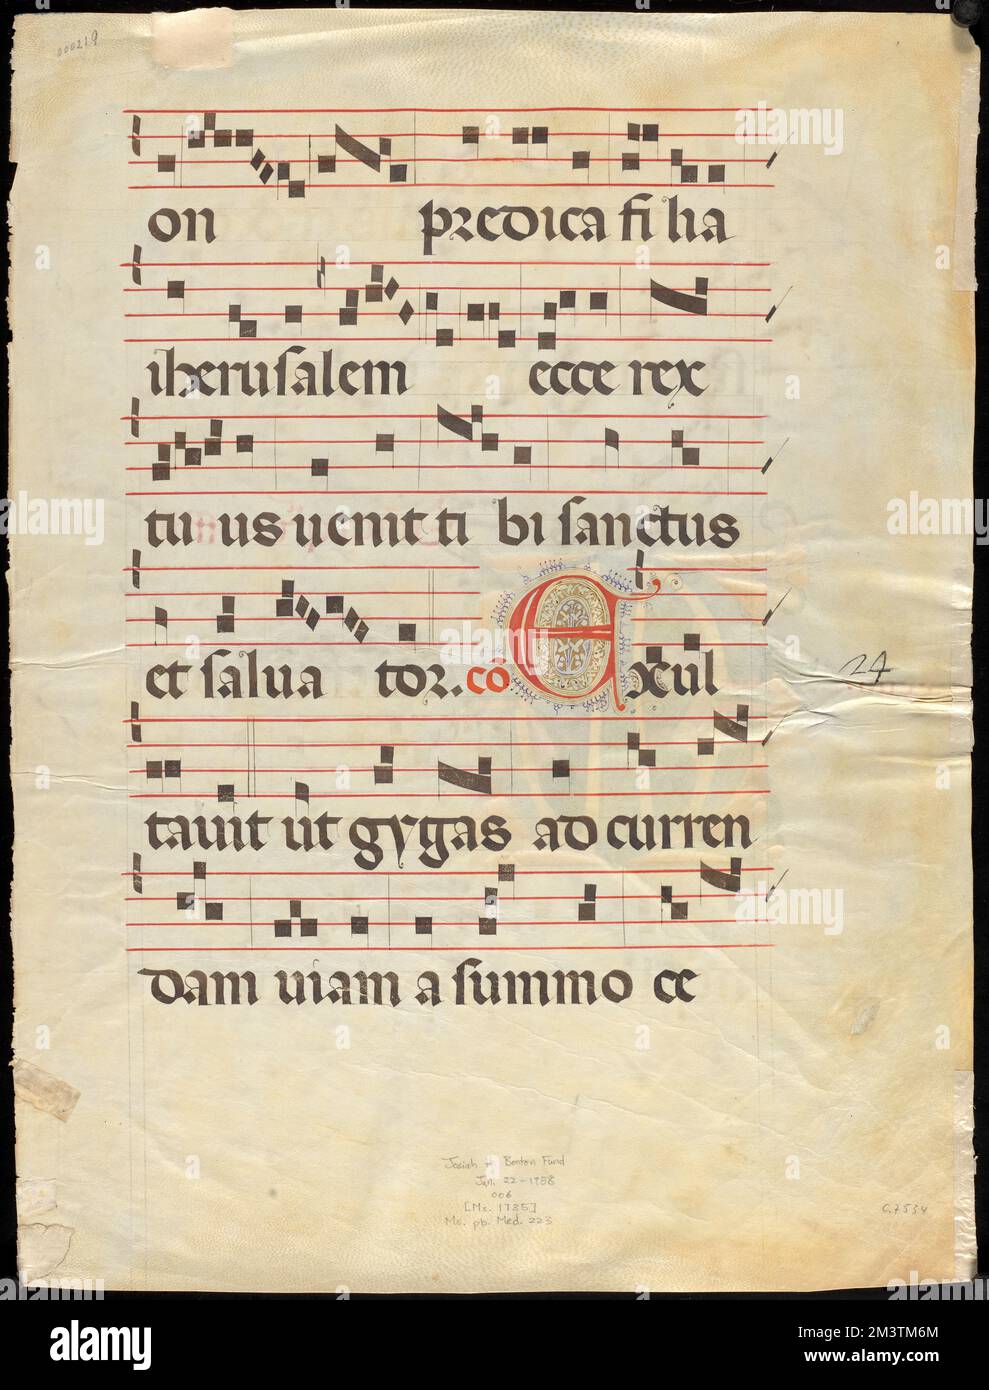 000219
on predica fi lia
iherusalem ecce rex
tu us uenit ti bi sanctus
et salua tor. cõ Exul
24
tauit ut gygas ad curren
dam uiam a summo ce
Josiah H Benton Fund
Jan. 22-1958
006
[Ms. 1785]
Ms. pb. Med. 223
C.7534
alamy
Image ID: 2M3TM6M
www.alamy.com